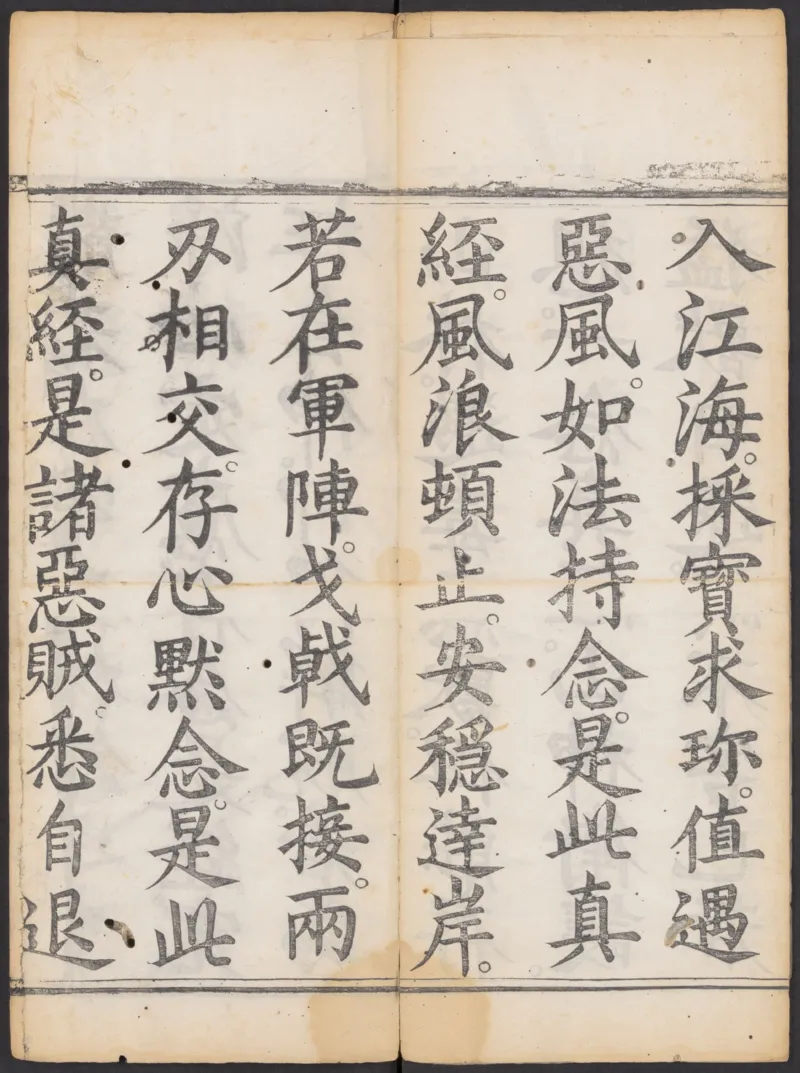 入江海。採寶求珎。值遇
惡風。如法持念。是此真
経。風浪頓止。安穩達岸。
若在軍陣。戈戟既接。兩
刃相交。存心黙念。是此
真経。是諸惡賊。悉自退